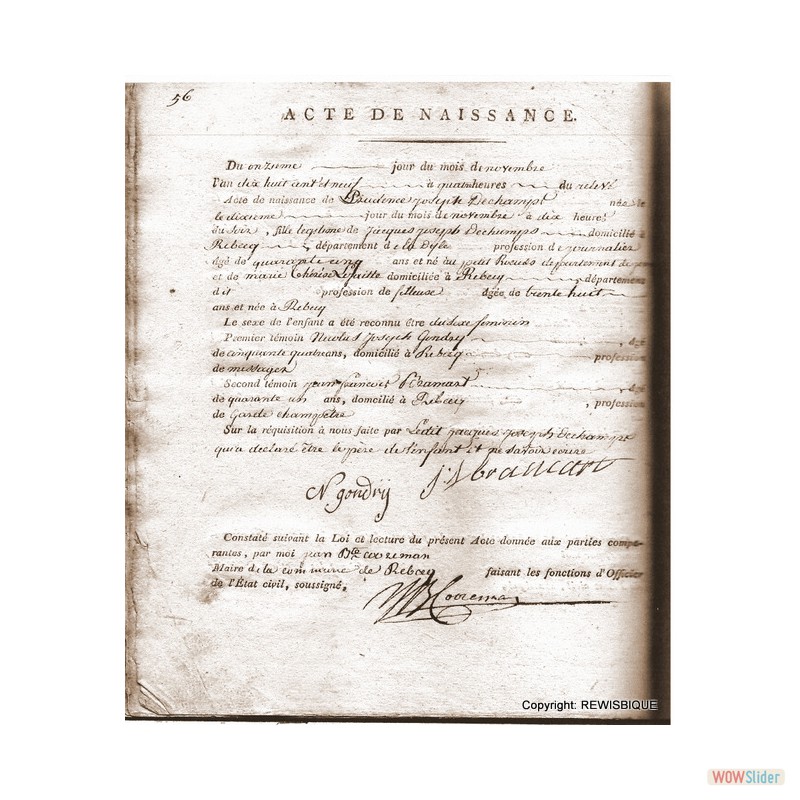 56
ACTE DE NAISSANCE.
Du onzieme jour du mois de novembre
l'an dix huit cent et neuf à quatre heures du relevé
Acte de naissance de Prudence Joseph Dechampt née le
le dixieme jour du mois de novembre à dix heures
du soir, fille legitime de Jacques Joseph Dechamps domicilié à
Rebecq, département de la Dyle profession de journalier
âgé de quarante cinq ans et né au petit département de
et de marie Thérèse domiciliée à Rebecq département
dit profession de fileuse âgée de trente huit
ans et née à Rebecq
Le sexe de l'enfant a été reconnu être du sexe feminin
Premier témoin Nicolas Joseph Gondry, âgé
de cinquante quatre ans, domicilié à Rebecq profession
de messager
Second témoin jean françois âgé
de quarante un ans, domicilié à Rebecq, profession
de Garde champetre
Sur la réquisition à nous faite par Ledit Jacques Joseph Dechampt
qui a declaré être le père de l'enfant et ne savoir ecrire
N gondry
Constaté suivant la Loi et lecture du présent Acte donnée aux parties compa-
rantes, par moi jean Bte cooreman
Maire de la commune de Rebecq faisant les fonctions d'Officier
de l'État civil, soussigné,
Cooreman
Copyright: REWISBIQUE
WOWSlider